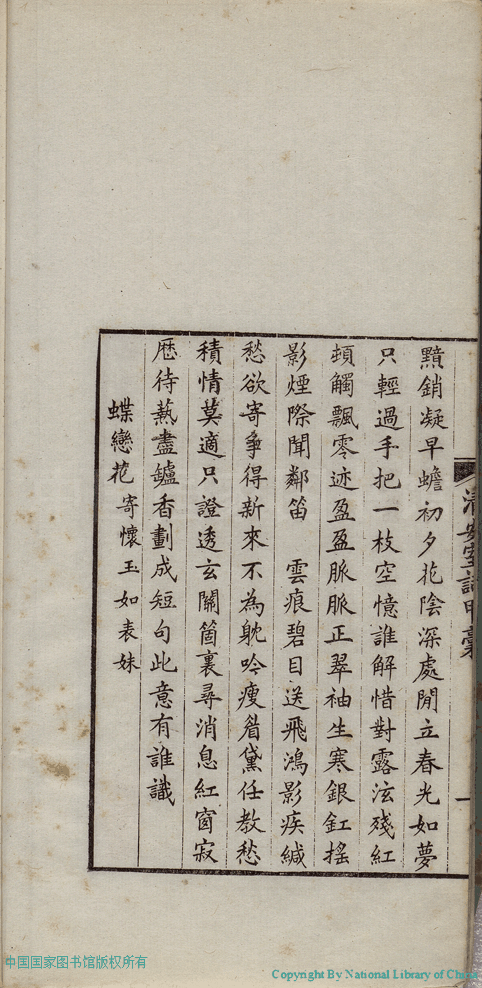 黯銷凝早蟾初夕花陰深處閒立春光如夢
只輕過手把一枝空憶誰解惜對露泫殘紅
頓觸飄零迹盈盈脈脈正翠袖生寒銀釭搖
影煙際聞鄰笛　雲痕碧目送飛鴻影疾緘
愁欲寄爭得新來不為躭吟瘦眉黛任教愁
積情莫適只證透玄關箇裏尋消息紅窗寂
歷待爇盡鑪香劃成短句此意有誰識
蝶戀花 寄懷玉如表妹
中国国家图书馆版权所有
Copyright By National Library of